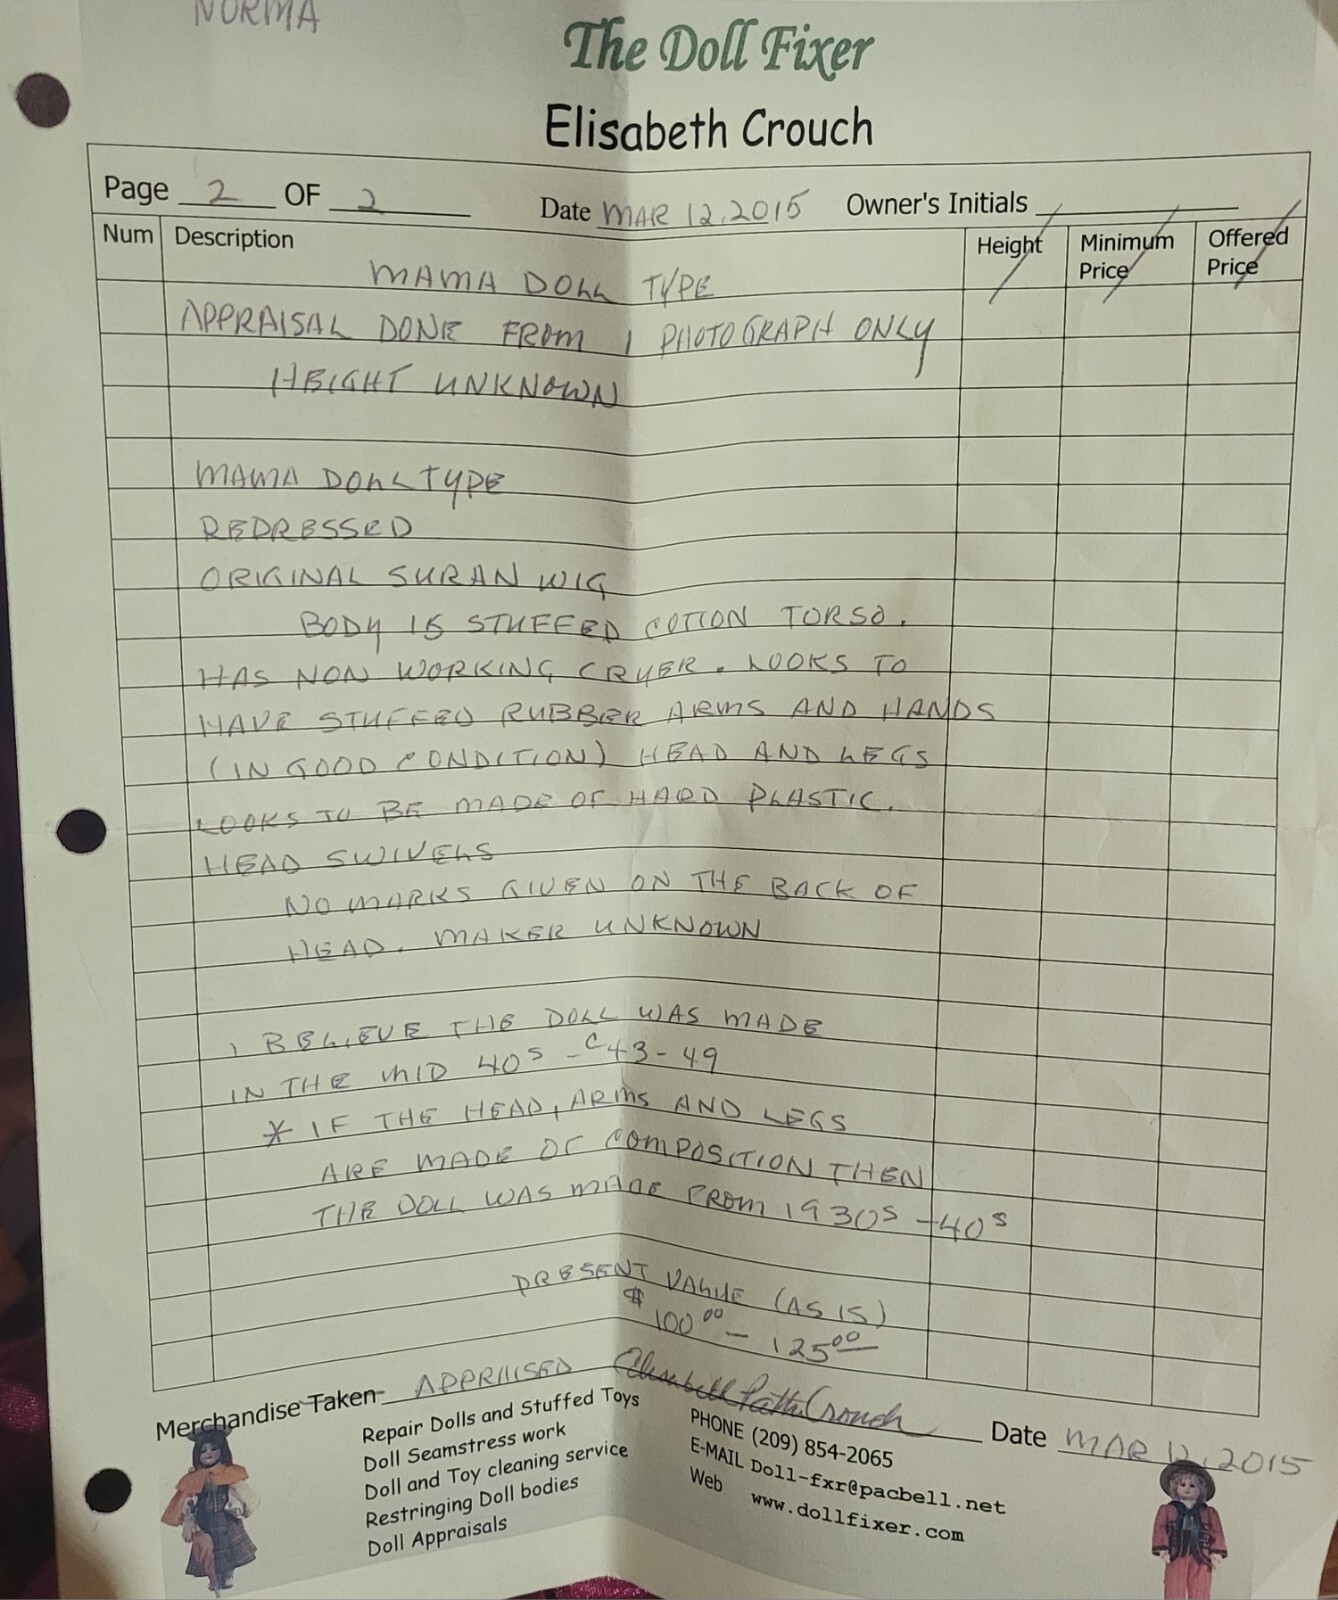 NORMA
The Doll Fixer
Elisabeth Crouch
Page 2 OF 2 Date MAR 12, 2015 Owner's Initials
Num Description Height Minimum Price Offered Price
MAMA DOLL TYPE
APPRAISAL DONE FROM 1 PHOTOGRAPH ONLY
HEIGHT UNKNOWN
MAMA DOLL TYPE
REDRESSED
ORIGINAL SURAN WIG
BODY IS STUFFED COTTON TORSO.
HAS NON WORKING CRYER. LOOKS TO
HAVE STUFFED RUBBER ARMS AND HANDS
(IN GOOD CONDITION) HEAD AND LEGS
LOOKS TO BE MADE OF HARD PLASTIC.
HEAD SWIVELS
NO MARKS GIVEN ON THE BACK OF
HEAD. MAKER UNKNOWN
I BELIEVE THE DOLL WAS MADE
IN THE MID 40S - C43-49
* IF THE HEAD, ARMS AND LEGS
ARE MADE OF COMPOSITION THEN
THE DOLL WAS MADE FROM 1930S - 40S
PRESENT VALUE (AS IS)
$100.00 - 125.00
Merchandise Taken APPRAISED Elisabeth Crouch Date MAR 12, 2015
Repair Dolls and Stuffed Toys
Doll Seamstress work
Doll and Toy cleaning service
Restringing Doll bodies
Doll Appraisals
PHONE (209) 854-2065
E-MAIL Doll-fxr@pacbell.net
Web www.dollfixer.com